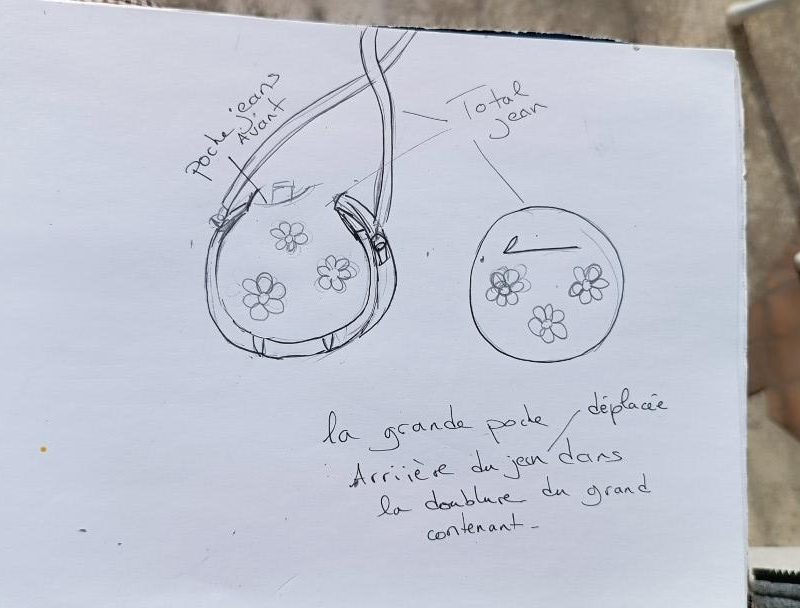 Poche jeans
Avant
Total
jean
la grande poche déplacée
Arriière du jean dans
la doublure du grand
contenant -